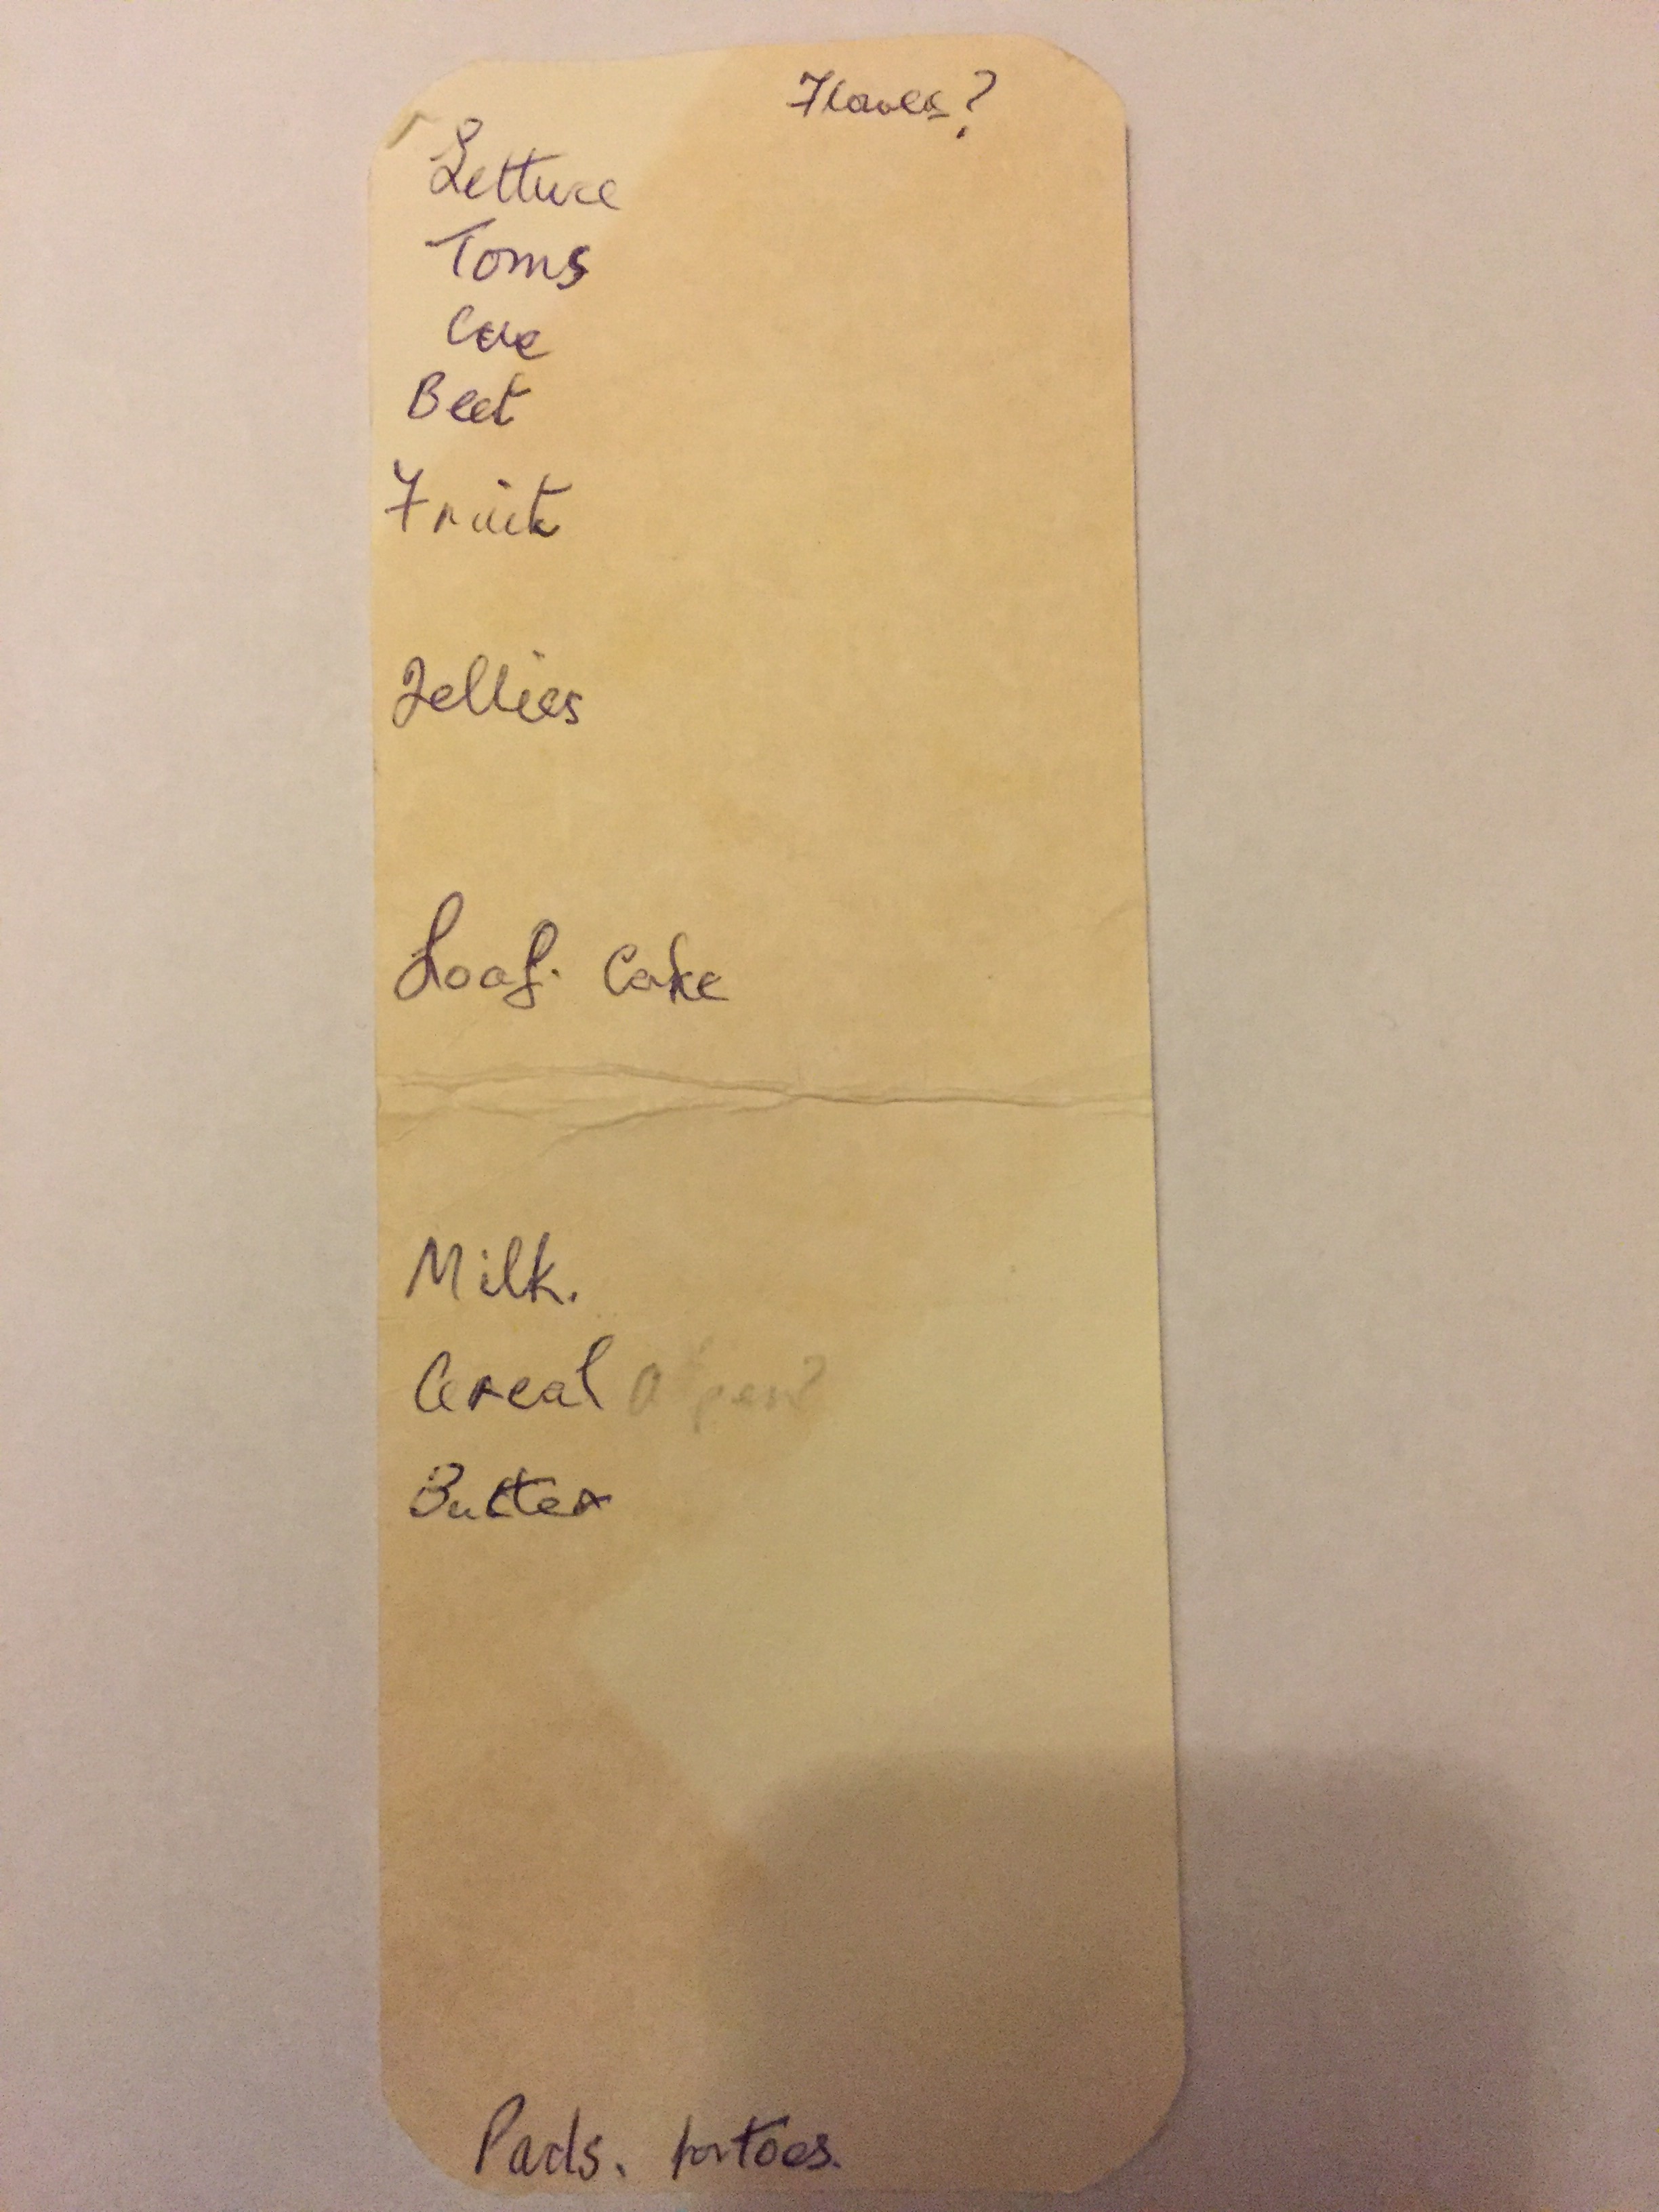 Flowes?
Lettuce
Toms
Cue
Beet
Fruit
Jellies
Loaf. Cake
Milk.
Cereal Alpen?
Butter
Pads. portoes.